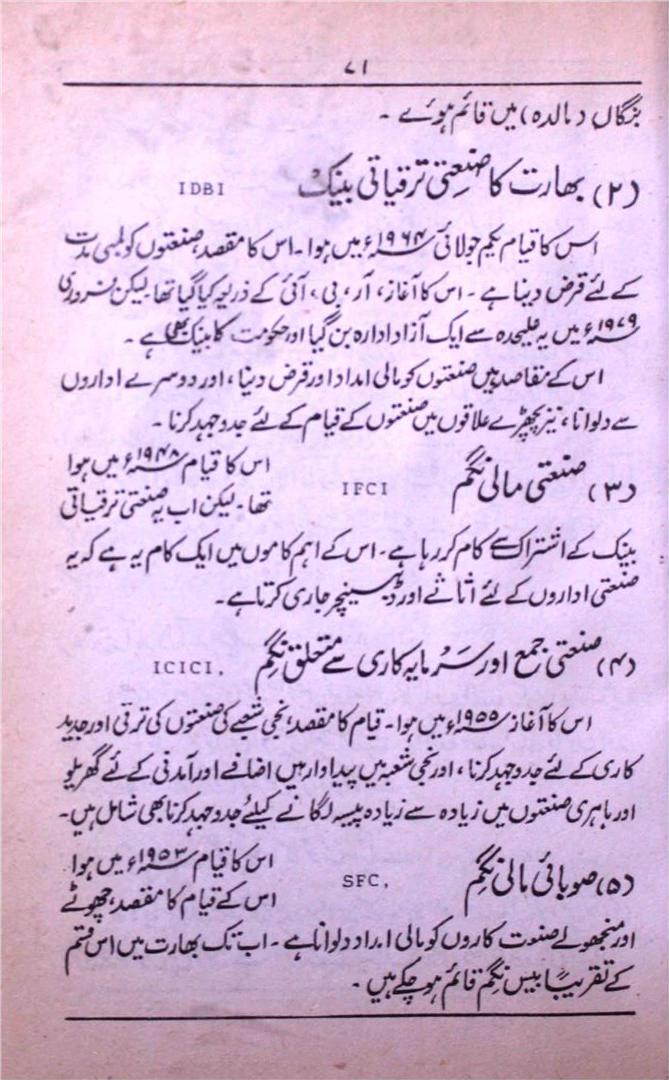 ۷۱
بنگال (مالدہ) میں قائم ہوئے ۔
(۲) بھارت کا صنعتی ترقیاتی بینک IDBI
اس کا قیام یکم جولائی ۱۹۶۴ء میں ہوا ۔ اس کا مقصد، صنعتوں کو لمبی مدت
کے لئے قرض دینا ہے ۔ اس کا آغاز، آر، بی، آئی کے ذریعہ کیا گیا تھا لیکن فروری
۱۹۷۹ء میں یہ علیحدہ سے ایک آزاد ادارہ بن گیا اور حکومت کا بینک بھی ہے ۔
اس کے مقاصد ہیں صنعتوں کو مالی امداد اور قرض دینا، اور دوسرے اداروں
سے دلوانا، نیز بچھڑے علاقوں میں صنعتوں کے قیام کے لئے جدوجہد کرنا ۔
(۳) صنعتی مالی نگم IFCI اس کا قیام ۱۹۴۸ء میں ہوا
تھا ۔ لیکن اب یہ صنعتی ترقیاتی
بینک کے اشتراک سے کام کر رہا ہے ۔ اس کے اہم کاموں میں ایک کام یہ ہے کہ یہ
صنعتی اداروں کے لئے اثاثے اور ڈیبینچر جاری کرتا ہے ۔
(۴) صنعتی جمع اور سرمایہ کاری سے متعلق نگم ICICI,
اس کا آغاز ۱۹۵۵ء میں ہوا ۔ قیام کا مقصد، نجی شعبے کی صنعتوں کی ترقی اور جدید
کاری کے لئے جدوجہد کرنا، اور نجی شعبہ میں پیداوار میں اضافے اور آمدنی کے لئے گھریلو
اور باہری صنعتوں میں زیادہ سے زیادہ پیسہ لگانے کیلئے جدوجہد کرنا بھی شامل ہیں ۔
(۵) صوبائی مالی نگم SFC, اس کا قیام ۱۹۵۳ء میں ہوا
اس کے قیام کا مقصد، چھوٹے
اور منجھولے صنعت کاروں کو مالی امداد دلوانا ہے ۔ اب تک بھارت میں اس قسم
کے تقریباً بیس نگم قائم ہو چکے ہیں ۔